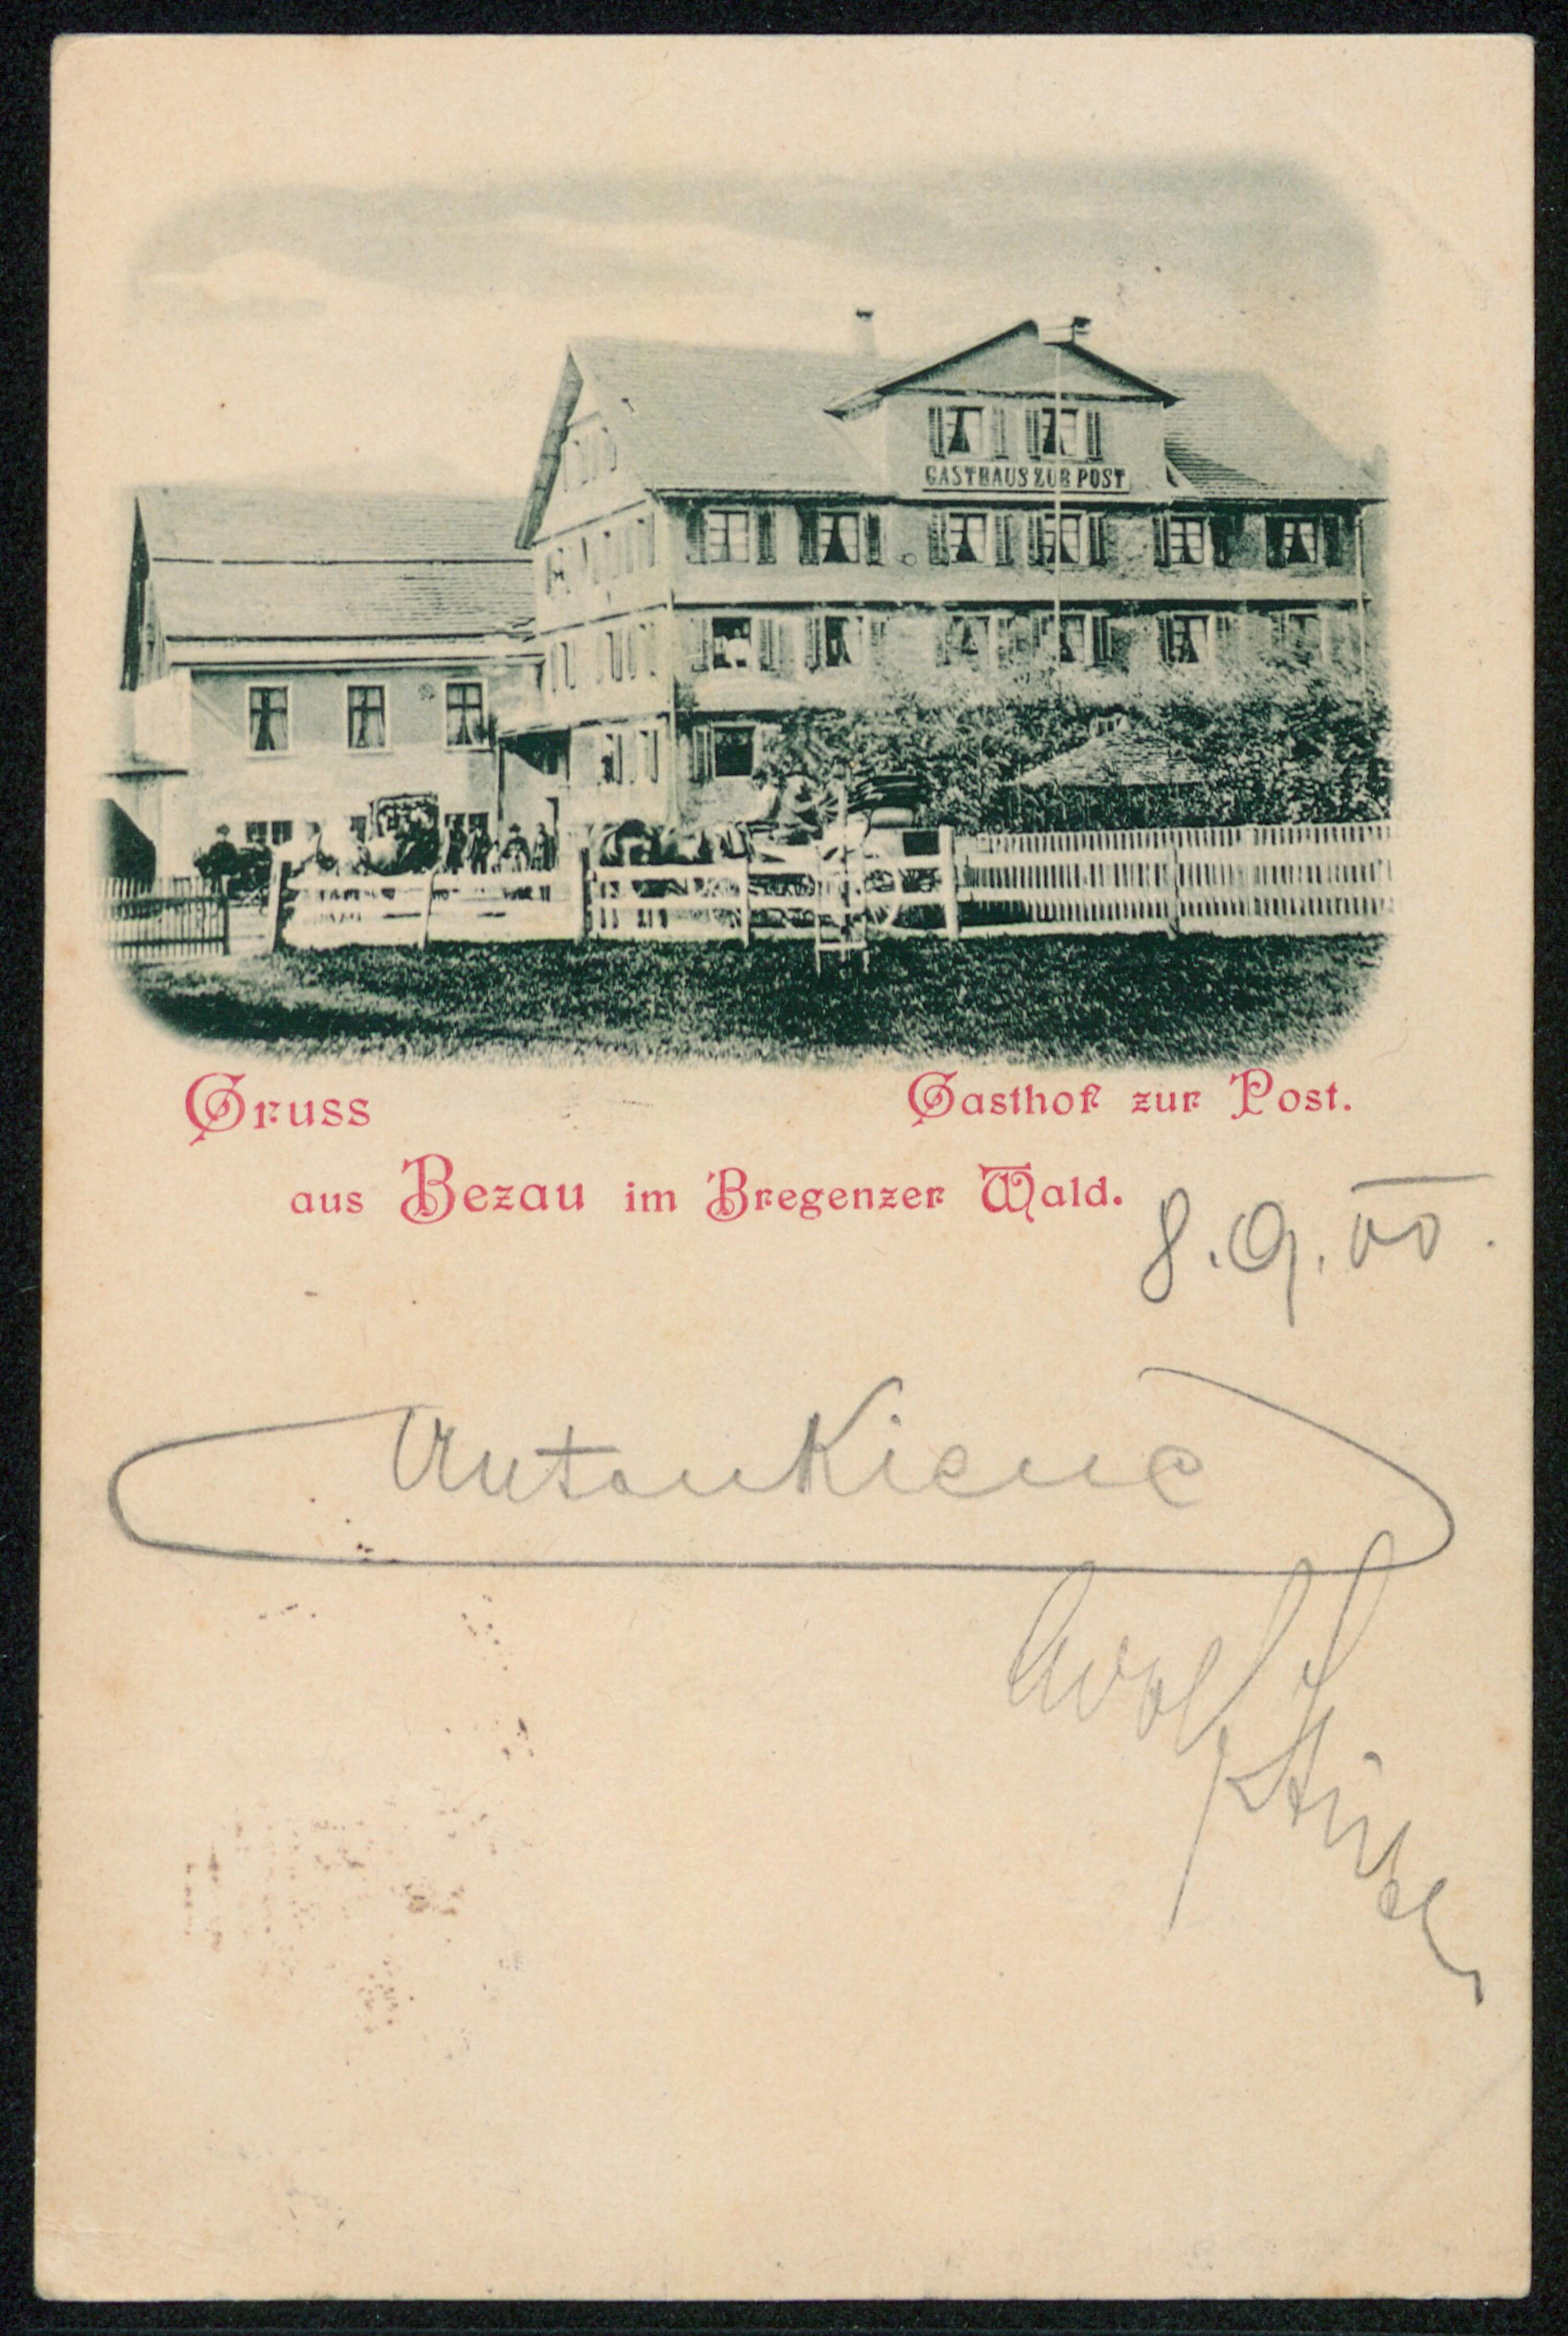 GASTHAUS ZUR POST
Gruss
Gasthof zur Post.
aus Bezau im Bregenzer Wald.
8.9.00.
Anton Kiene